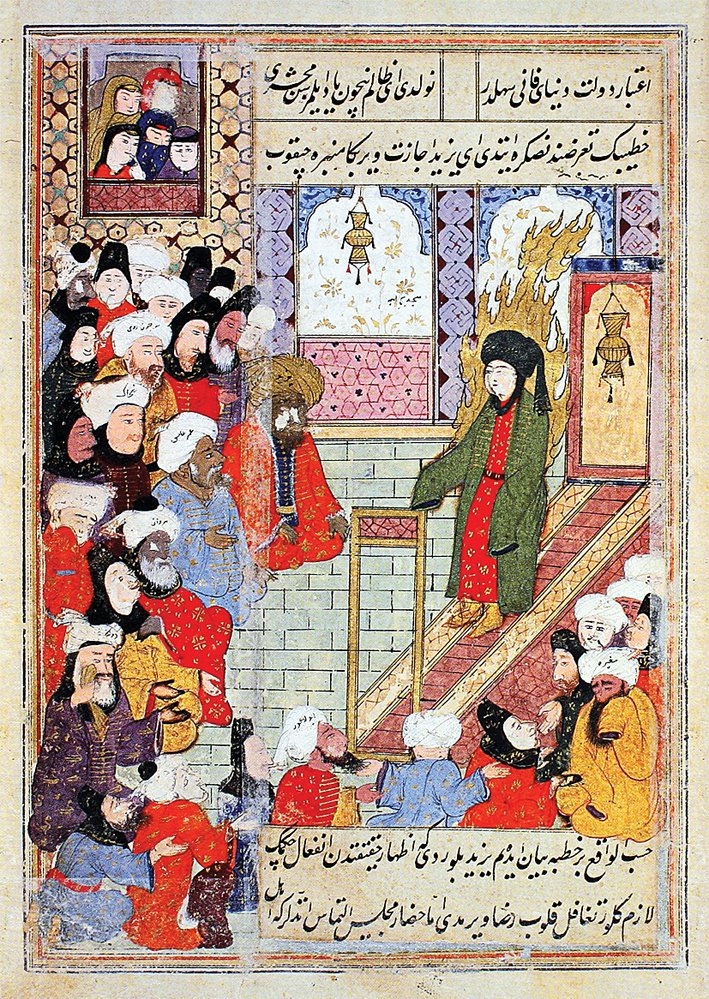 اعتبار دولت دنیای فانی سهلدر نولدی ای ظالم نیچون یاد ایلمزسن محشری
خطیبک تعرضندنصکره ایتدی ای یزید اجازت ویر کا منبره چیقوب
حسب الواقع بر خطبه بیان ایدم یزید بلوردی که اظهار حقیقتدن انفعال چکمک
لازم کلور تغافل قلوب رضا ویرمدی اما حضار مجلس التماس اتدلر که اهل